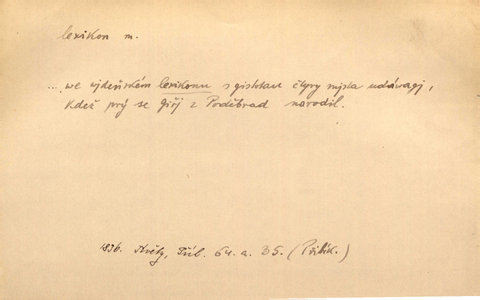 lexikon m.
... we wjdeňském lexikonu s gistotau čtyry mjsta udáwagj,
kdež prý se Giřj z Poděbrad narodil.
1836. Květy, Příl. 64. a. 35. (Přibík.)